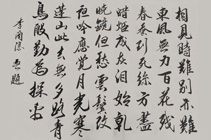 相見時難別亦難
東風無力百花殘
春蚕到死絲方盡
蜡炬成灰泪始乾
曉鏡但愁雲鬢改
夜吟應覺月光寒
蓬山此去無多路青
鳥殷勤為探看
李商隱 無題